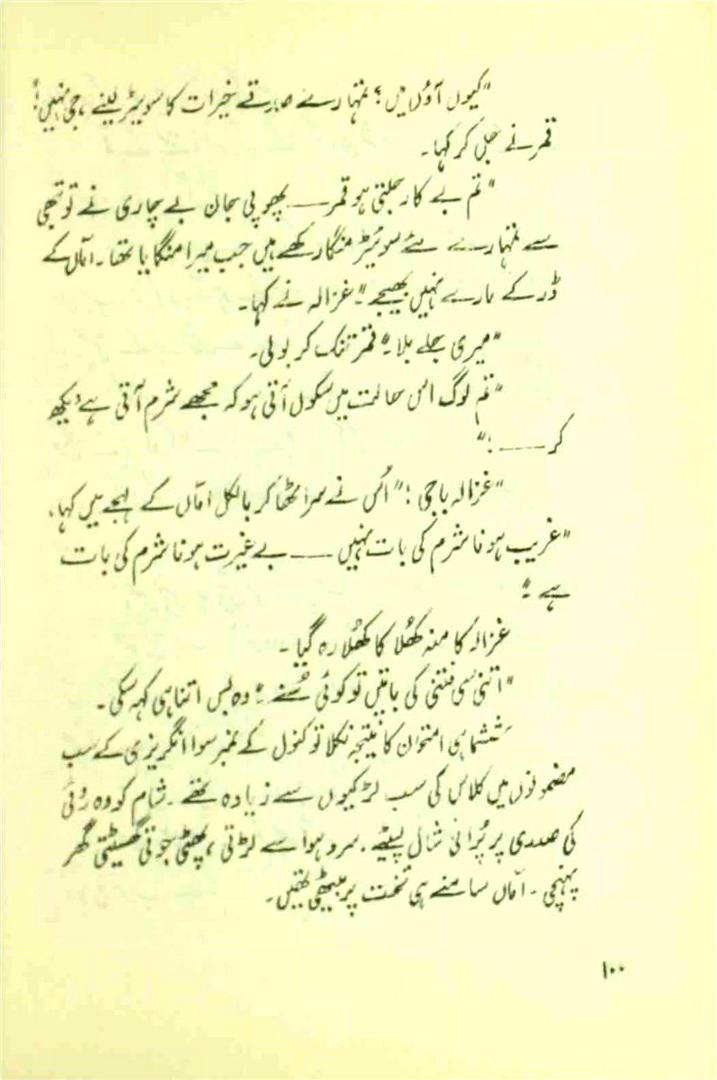 "کیوں آؤں میں؟ تمہارے صدقے خیرات کا سویٹر لینے، جی نہیں!"
قمر نے جل کر کہا۔
"تم بے کار جلتی ہو قمر —— پھوپی جان بے چاری نے تو تبھی
سے تمہارے لئے سویٹر منگا رکھے ہیں جب میرا منگایا تھا۔ اماں کے
ڈر کے مارے نہیں بھیجے"۔ غزالہ نے کہا۔
"میری جلے بلا۔" قمر تنک کر بولی۔
"تم لوگ اس حالت میں سکول آتی ہو کہ مجھے شرم آتی ہے دیکھ
کر —— !"
"غزالہ باجی!" اُس نے سر اٹھا کر بالکل اماں کے لہجے میں کہا،
"غریب ہونا شرم کی بات نہیں —— بے غیرت ہونا شرم کی بات
ہے۔"
غزالہ کا منہ کھُلا کا کھُلا رہ گیا۔
"اتنی سی فتنی کی باتیں تو کوئی سُنے۔" وہ بس اتنا ہی کہہ سکی۔
ششماہی امتحان کا نتیجہ نکلا تو کنول کے نمبر سوا انگریزی کے سب
مضمونوں میں کلاس کی سب لڑکیوں سے زیادہ تھے۔ شام کو وہ روئی
کی صدری پر پُرانی شال لپیٹے، سرد ہوا سے لڑتی، پھٹی جوتی گھسیٹتی گھر
پہنچی۔ اماں سامنے ہی تخت پر بیٹھی تھیں۔
۱۰۰